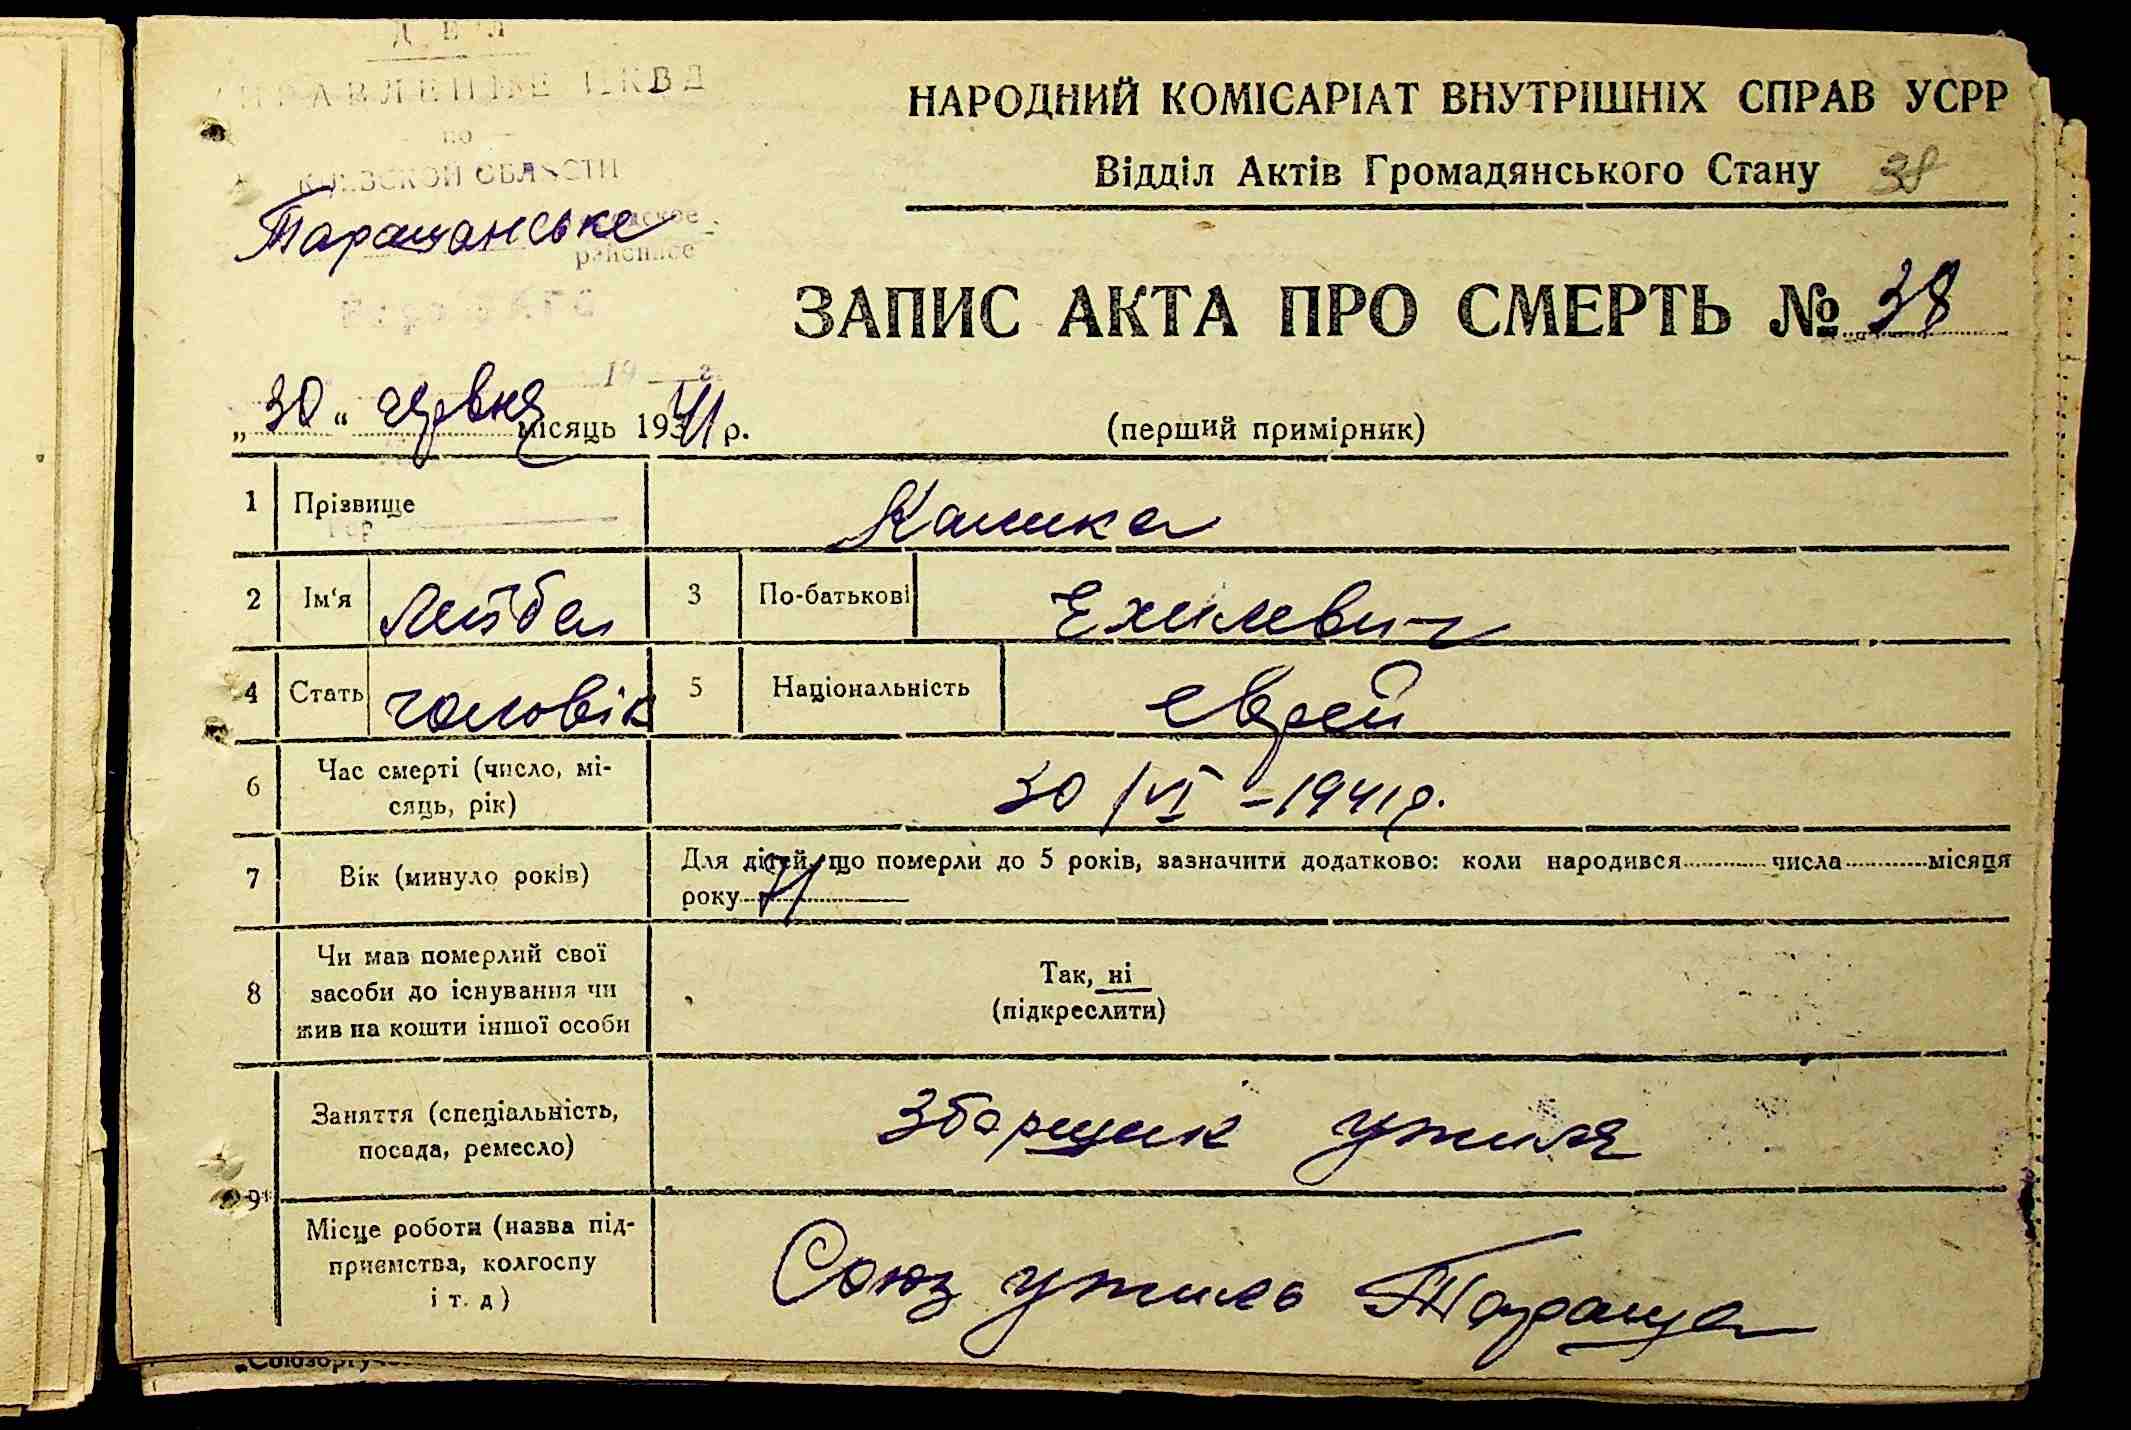 ДЕЛ
УПРАВЛЕНИЕ НКВД
по
КИЕВСКОЙ ОБЛАСТИ
Таращанське
районное
Бюро ЗАГС
19 г.
НАРОДНИЙ КОМІСАРІАТ ВНУТРІШНІХ СПРАВ УСРР
Відділ Актів Громадянського Стану 38
ЗАПИС АКТА ПРО СМЕРТЬ № 38
„30“ червня місяць 1941 р.
(перший примірник)
1 Прізвище
2 Ім'я Лейба 3 По-батькові Ехилевич
4 Стать чоловік 5 Національність еврей
6 Час смерті (число, мі-
сяць, рік) 30/VI – 1941 р.
7 Вік (минуло років) Для дітей, що померли до 5 років, зазначити додатково: коли народився числа місяця
року 71
8 Чи мав померлий свої
засоби до існування чи
жив на кошти іншої особи
Так, ні
(підкреслити)
9 Заняття (спеціальність,
посада, ремесло) Зборщик утиля
Місце роботи (назва під-
приємства, колгоспу
і т. д) Союз утиль Тараща